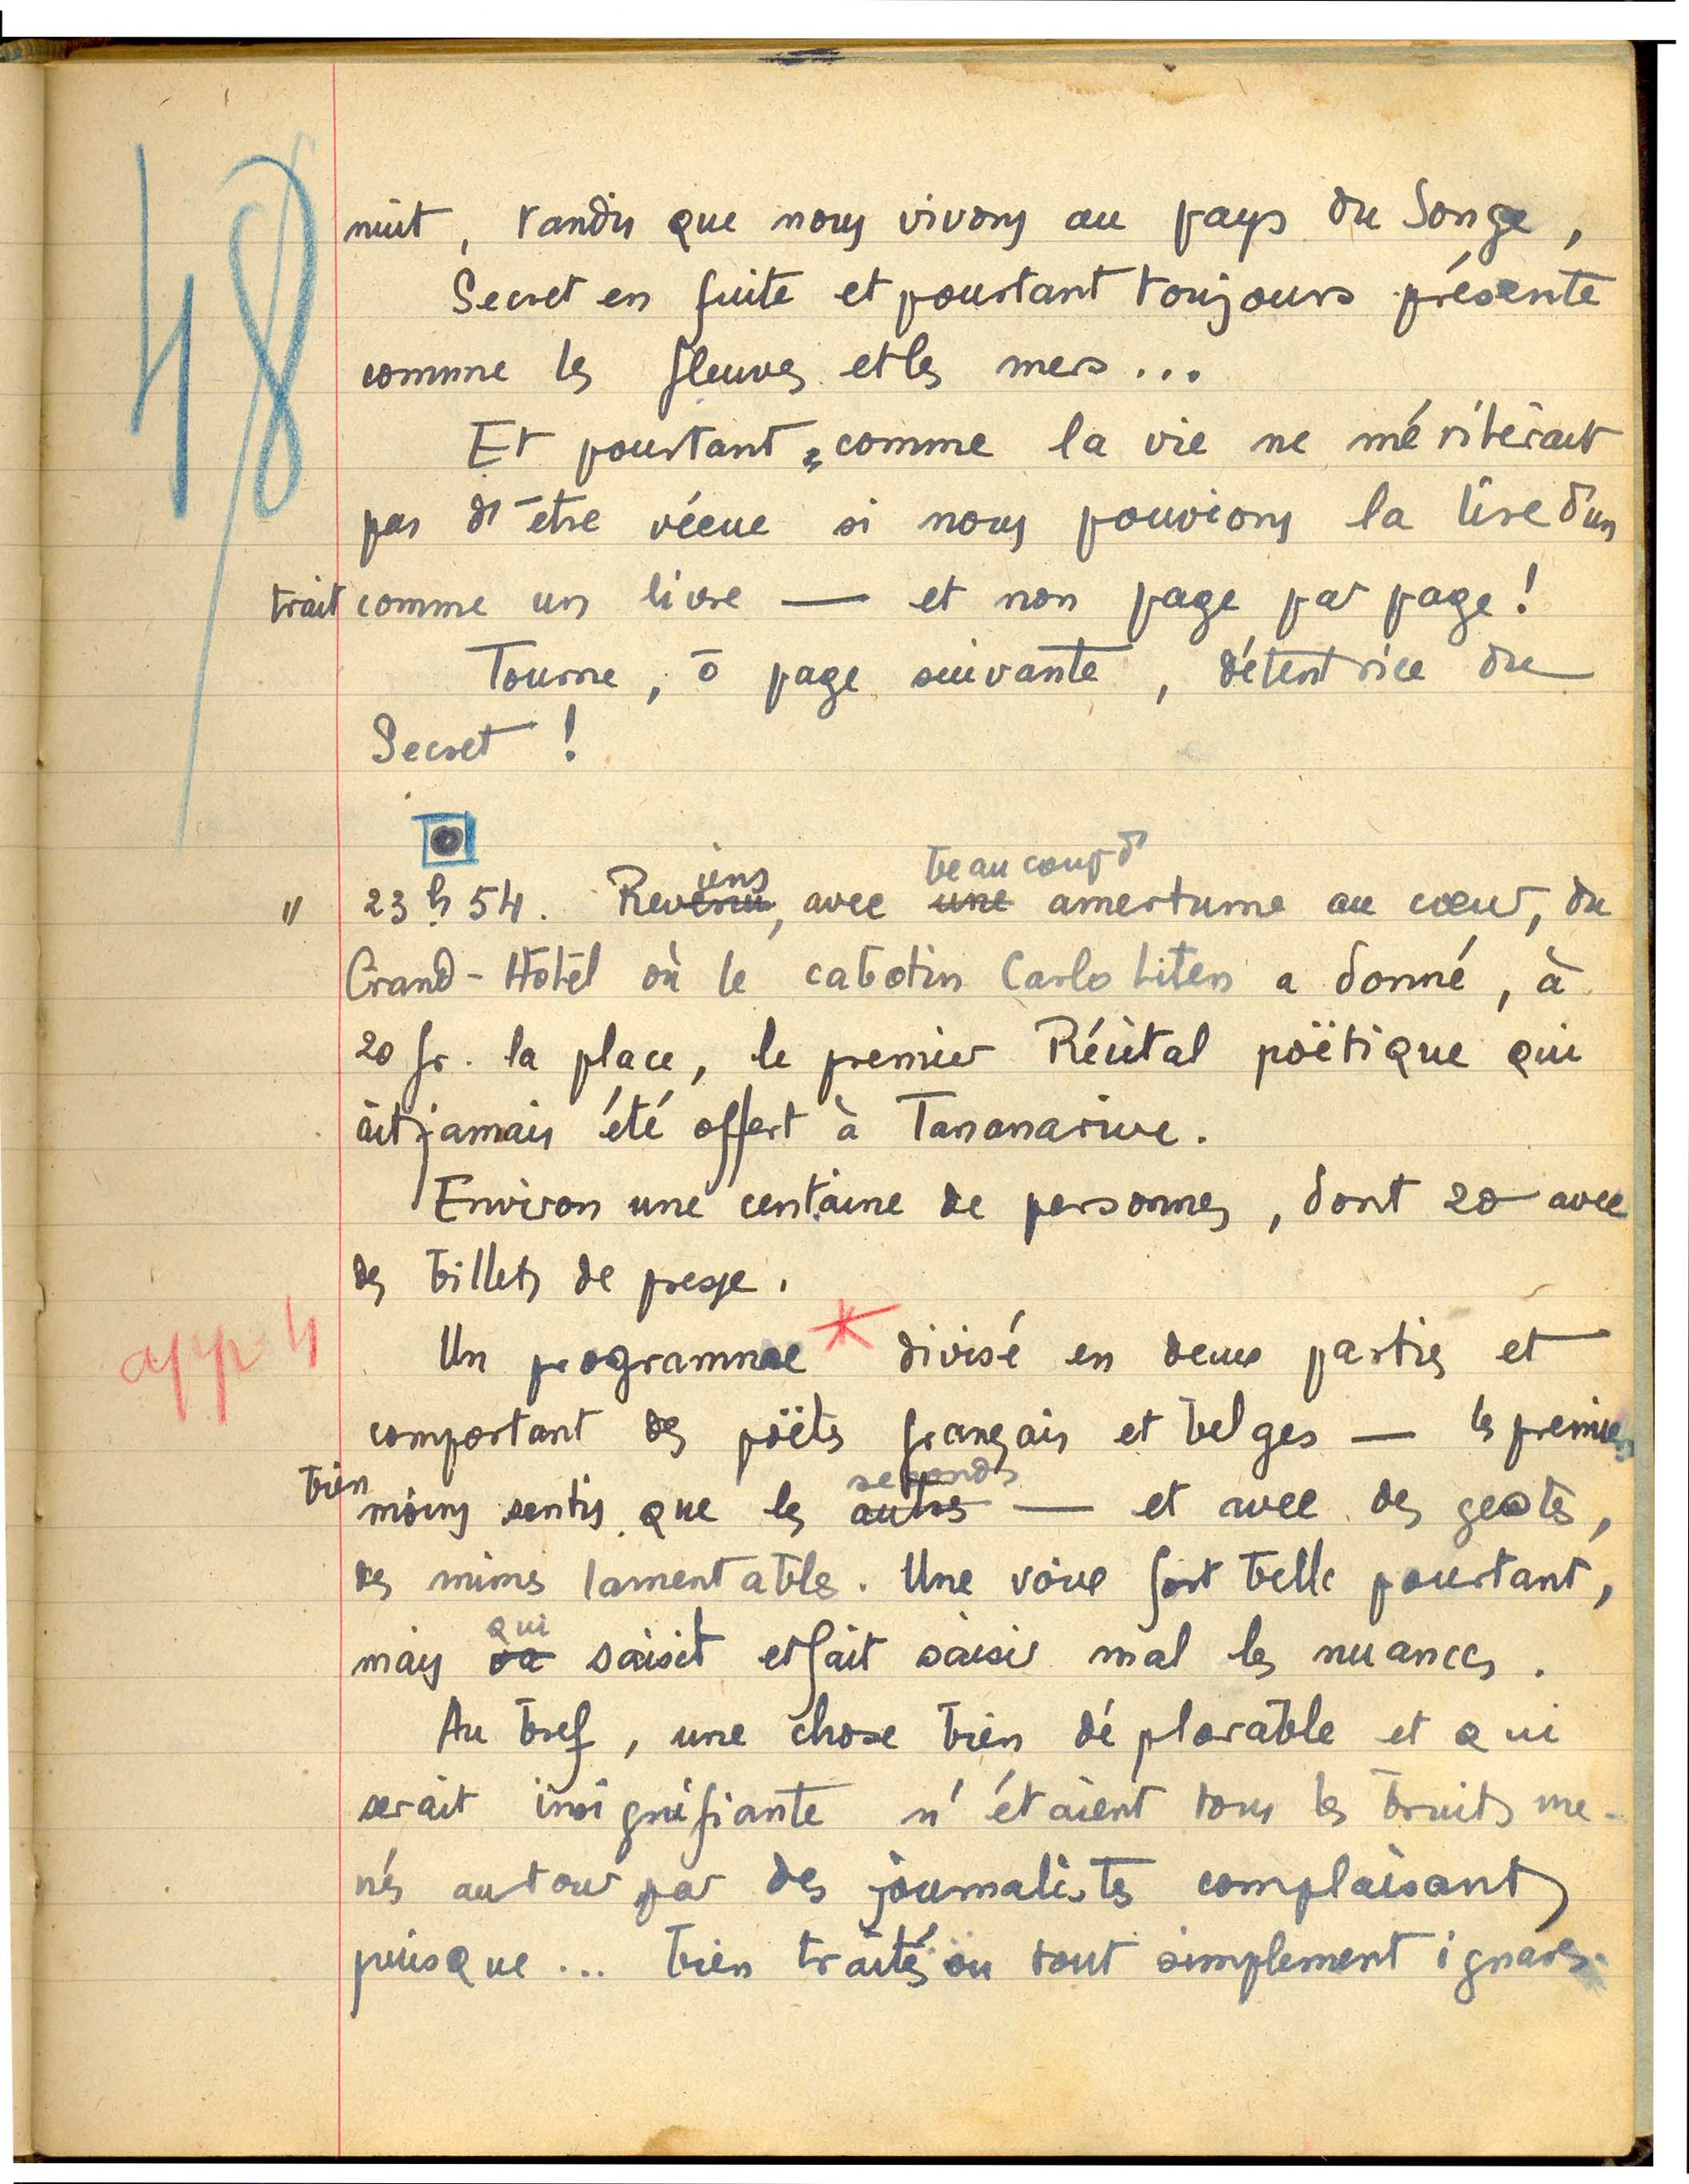 48
nuit, tandis que nous vivons au pays du Songe,
Secret en fuite et pourtant toujours présente
comme les fleuves et les mers...
Et pourtant, comme la vie ne mériterait
pas d'être vécue si nous pouvions la lire d'un
trait comme un livre — et non page par page!
Tourne, ô page suivante, détentrice du
Secret!
iens beaucoup d'
" 23 h 54. Revenu, avec une amertume au cœur, du
Grand-Hôtel où le cabotin Carlo Liten a donné, à
20 fr. la place, le premier Récital poëtique qui
ait jamais été offert à Tananarive.
Environ une centaine de personnes, dont 20 avec
des billets de presse.
app 4
Un programme * divisé en deux parties et
comportant des poëtes français et belges — les premiers
seconds
bien moins sentis que les autres — et avec des gestes,
des mimes lamentables. Une voix fort belle pourtant,
qui
mais sa saisit et fait saisir mal les nuances.
Au bref, une chose bien déplorable et qui
serait insignifiante n'étaient tous les bruits me-
nés autour par des journalistes complaisants
puisque... bien traités ou tout simplement ignares.